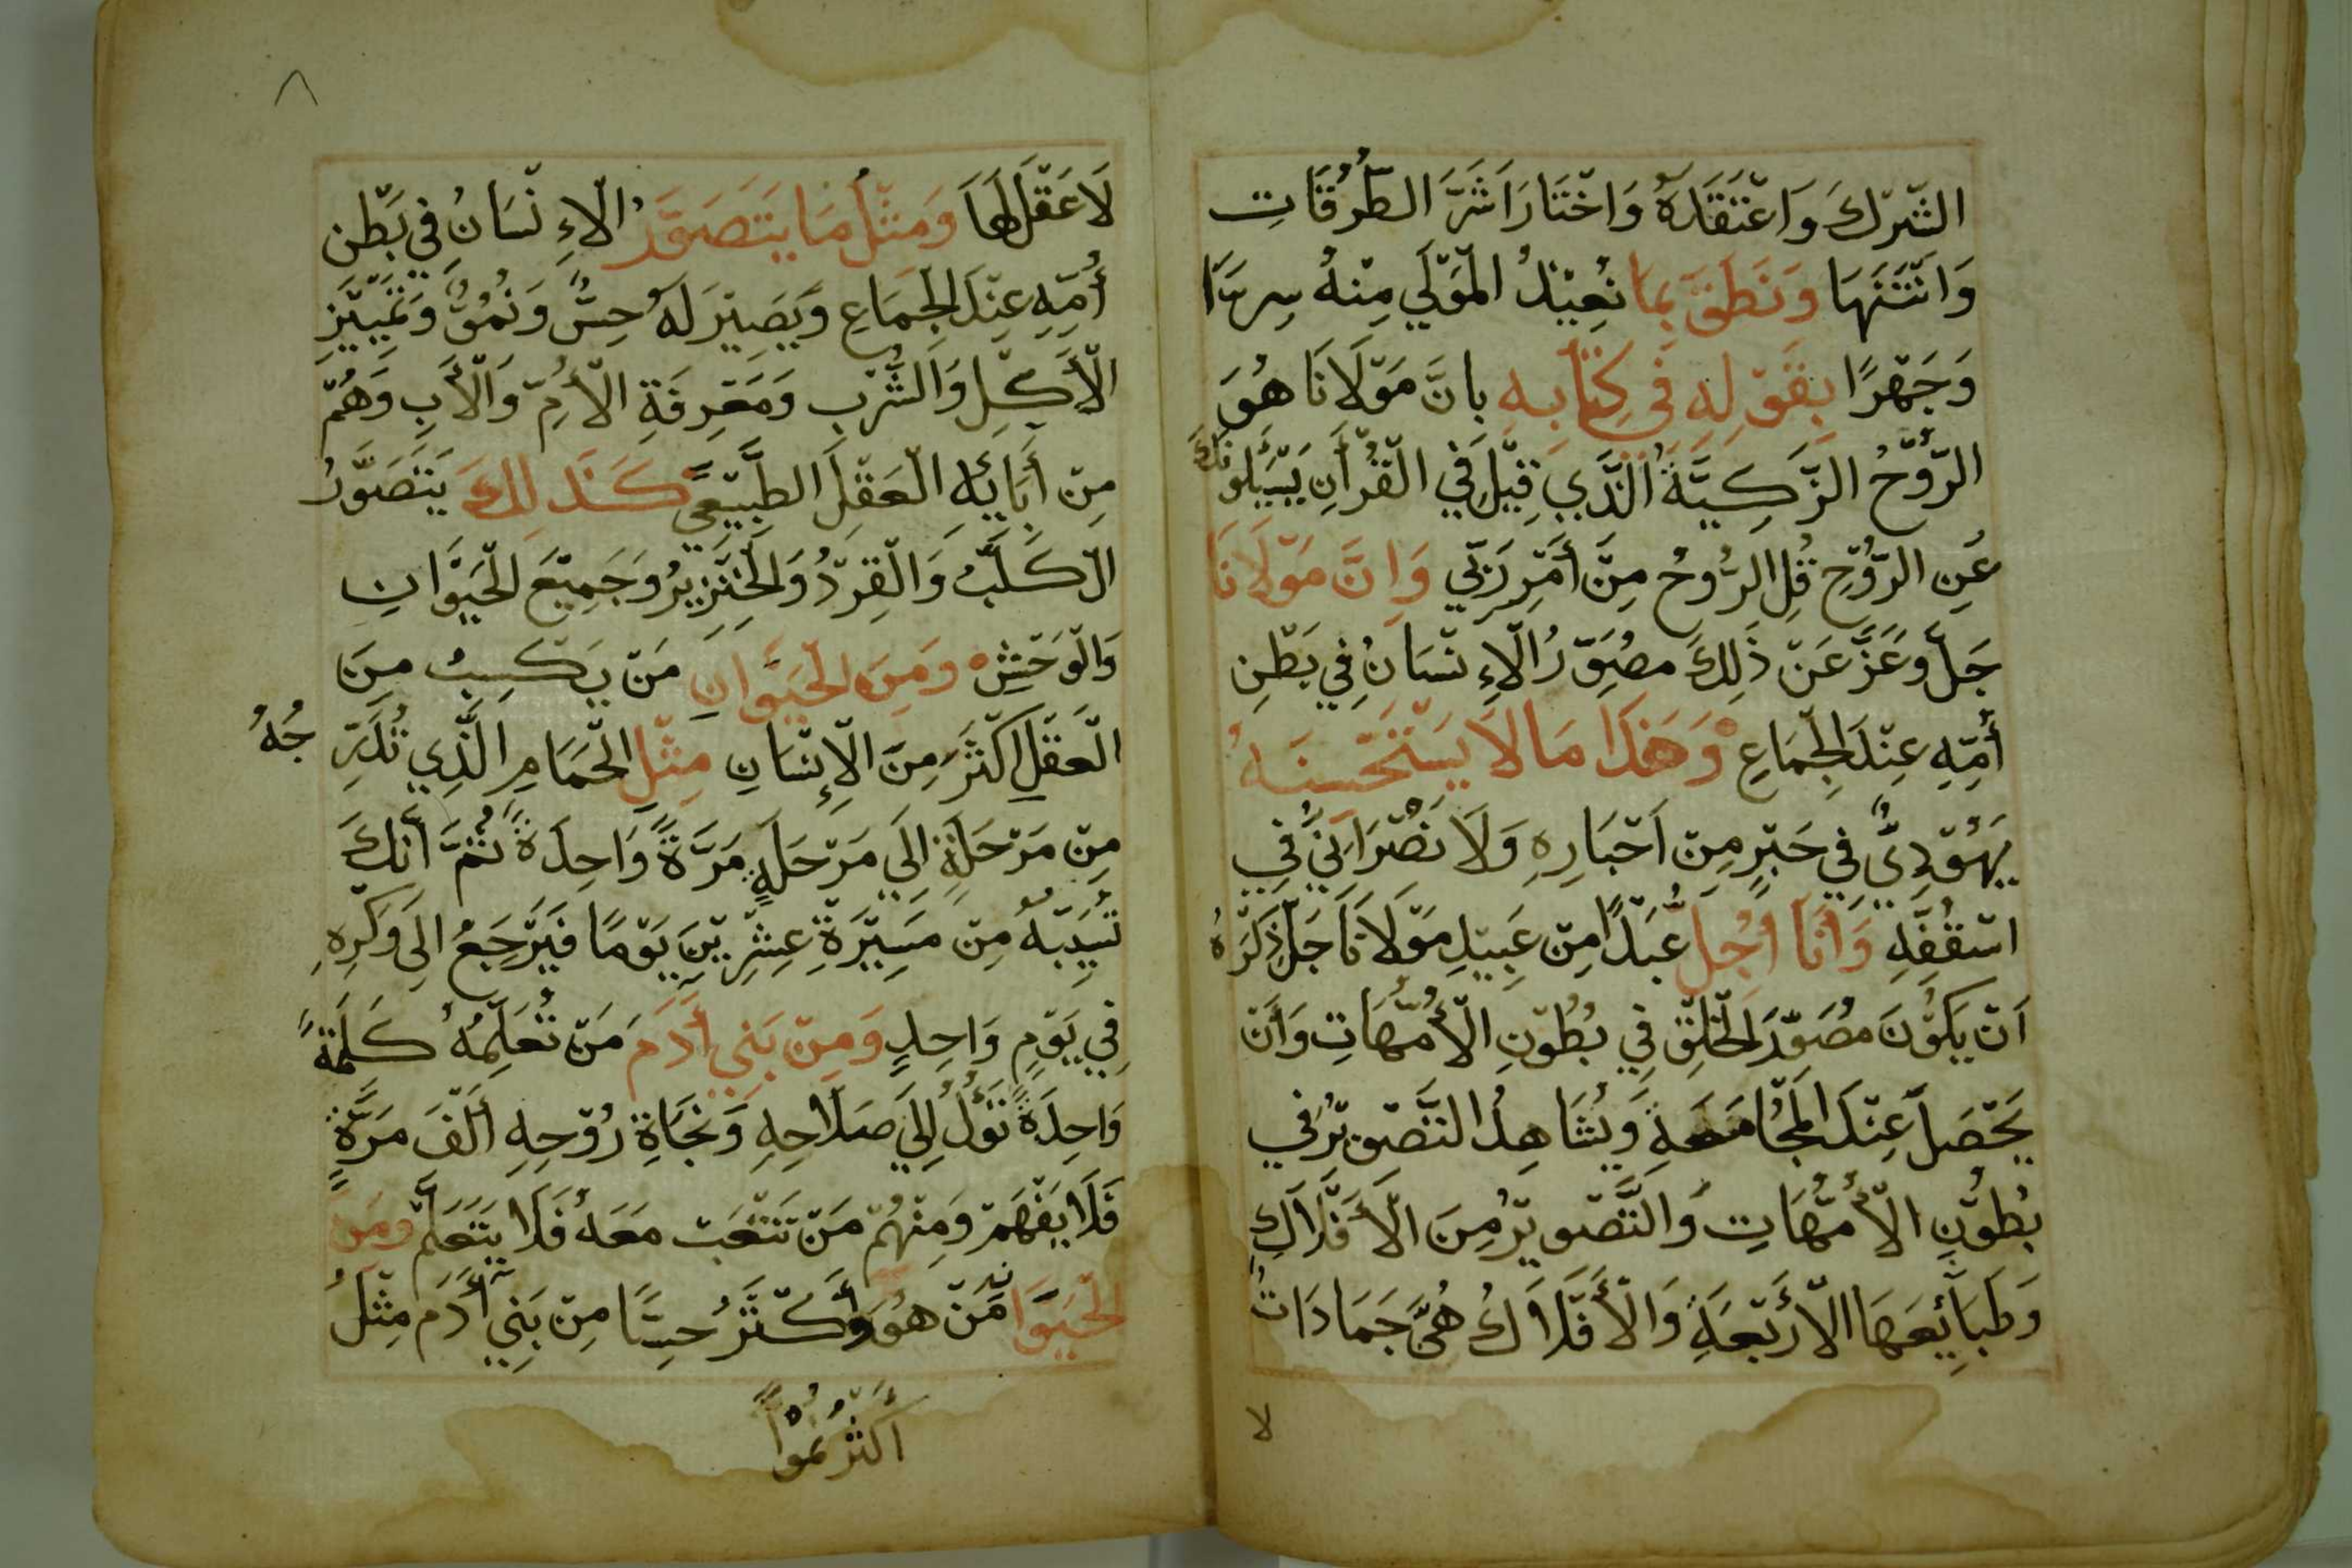 الشّرك وَاعْتَقَدَهُ وَاخْتَارَ اَشَرَّ الطُّرُقَاتِ
وَانْتَنَهَا وَنَطَقَ بِمَا نُعِيْذُ الْمَوْلَي مِنْهُ سِرًّا
وَجَهْرًا بِقَوْلِهِ فِي كِتَابِهِ بانَّ مَوْلَانَا هُوَ
الرُّوْحُ الزَّكِيَّةُ الَّذِي قِيْلَ فِي الْقُرْأَنِ يَسْئَلُونَكَ
عَنِ الرُّوْحِ قُلِ الرُّوحُ مِنْ أَمْرِ رَبِّي وَاِنَّ مَوْلَانَا
جَلَّ وعَزَّ عَنْ ذَلِكَ مصُوِّرُ الْاِءنْسَانُ فِي بَطْنِ
أُمِّهِ عِنْدَ الْجِمَاعِ وَهَذَا مَا لَا يَسْتَحْسنهُ
يَهُوْدِيٌّ فِي حَبْرٍ مِنْ اَحْبَارِهِ وَلَا نَصْرَانِيٌّ فِي
اسْقُفِّهِ وَأَنَا اُجِلُّ عَبْدًا مِنْ عَبِيْدِ مَوْلَانَا جَلَّ ذِكْرُهُ
اَنْ يَكُوْنَ مُصَوِّرَ الْخَلْقِ فِي بُطُوْنِ الْأُمَّهَاتِ وَأَنْ
يَحْصَلَ عِنْدَ الْمُجَامَعَةِ وَيُشَاهِدُ التَّصْوِيْرُ فِي
بُطُوْنِ الْأُمَّهَاتِ وَالتَّصْوِيْرُ مِنَ الْأَفْلَاكِ
وَطَبَآئِعَهَا الْأَرْبَعَةِ وَالْأَفْلَاكُ هُيَّ جَمَادَاتُ
لا
٨
لَا عَقْلَ لَهَا وَمثْلُ مَا يَتَصَوَّرُ الْاِءنْسَانُ فِي بَطْنِ
أُمِّهِ عِنْدَ الْجِمَاعِ وَيَصِيْرَ لَهُ حِسٌّ وَنُمُوٌّ وَتَمْيِيْزِ
الْأَكْلِ وَالشُّرْبِ وَمَعْرِفَةِ الْأُمِّ وَالْأَبِ وَهُمْ
مِنْ أَبَائِهِ الْعَقْلِ الطَّبِيْعِيِّ كَذَلِكَ يَتَصَوَّرُ
الْكَلْبُ وَالْقِرْدُ وَالْخِنْزِيرُ وَجَمِيْعَ الْحَيَوَانِ
وَالْوَحْشِ وَمِنَ الْحَيَوَانِ مَنْ يَكْسِبُ مِنَ
الْعَقْلِ اكْثَرَ مِنَ الْإِنْسَانِ مِثْلِ الْحَمَامِ الَّذِي تُدَرِّجُهُ
مِنْ مَرْحَلَةٍ اِلَي مَرْحَلَةٍ مَرَّةً وَاحِدَةً ثُمَّ أَنَّكَ
تُسَيِّبْهُ مِنْ مَسِيْرَةِ عِشْرِيْنَ يَوْمًا فَيَرْجِعُ الَي وَكْرِهِ
فِي يَوْمٍ وَاحِدٍ وَمِنْ بَنِي أَدَمَ مَنْ تُعَلِّمُهُ كَلِمَةً
وَاحِدَةً تَؤُلُ اِلَي صَلَاحِهِ وَنَجَاةِ رُوْحِهِ أَلْفَ مَرَّةٍ
فَلَا يَفْهَمْ وَمِنْهُمْ مَنْ تَتْعَبْ مَعَهُ فَلَا يَتَعَلَّمْ ومِن
الْحَيَوَانِ مَنْ هُوَ أَكْثَرُ حِسًّا مِنْ بَنِي أَدَم مِثْلُ
اَكْثَرُ نُمُوًّا